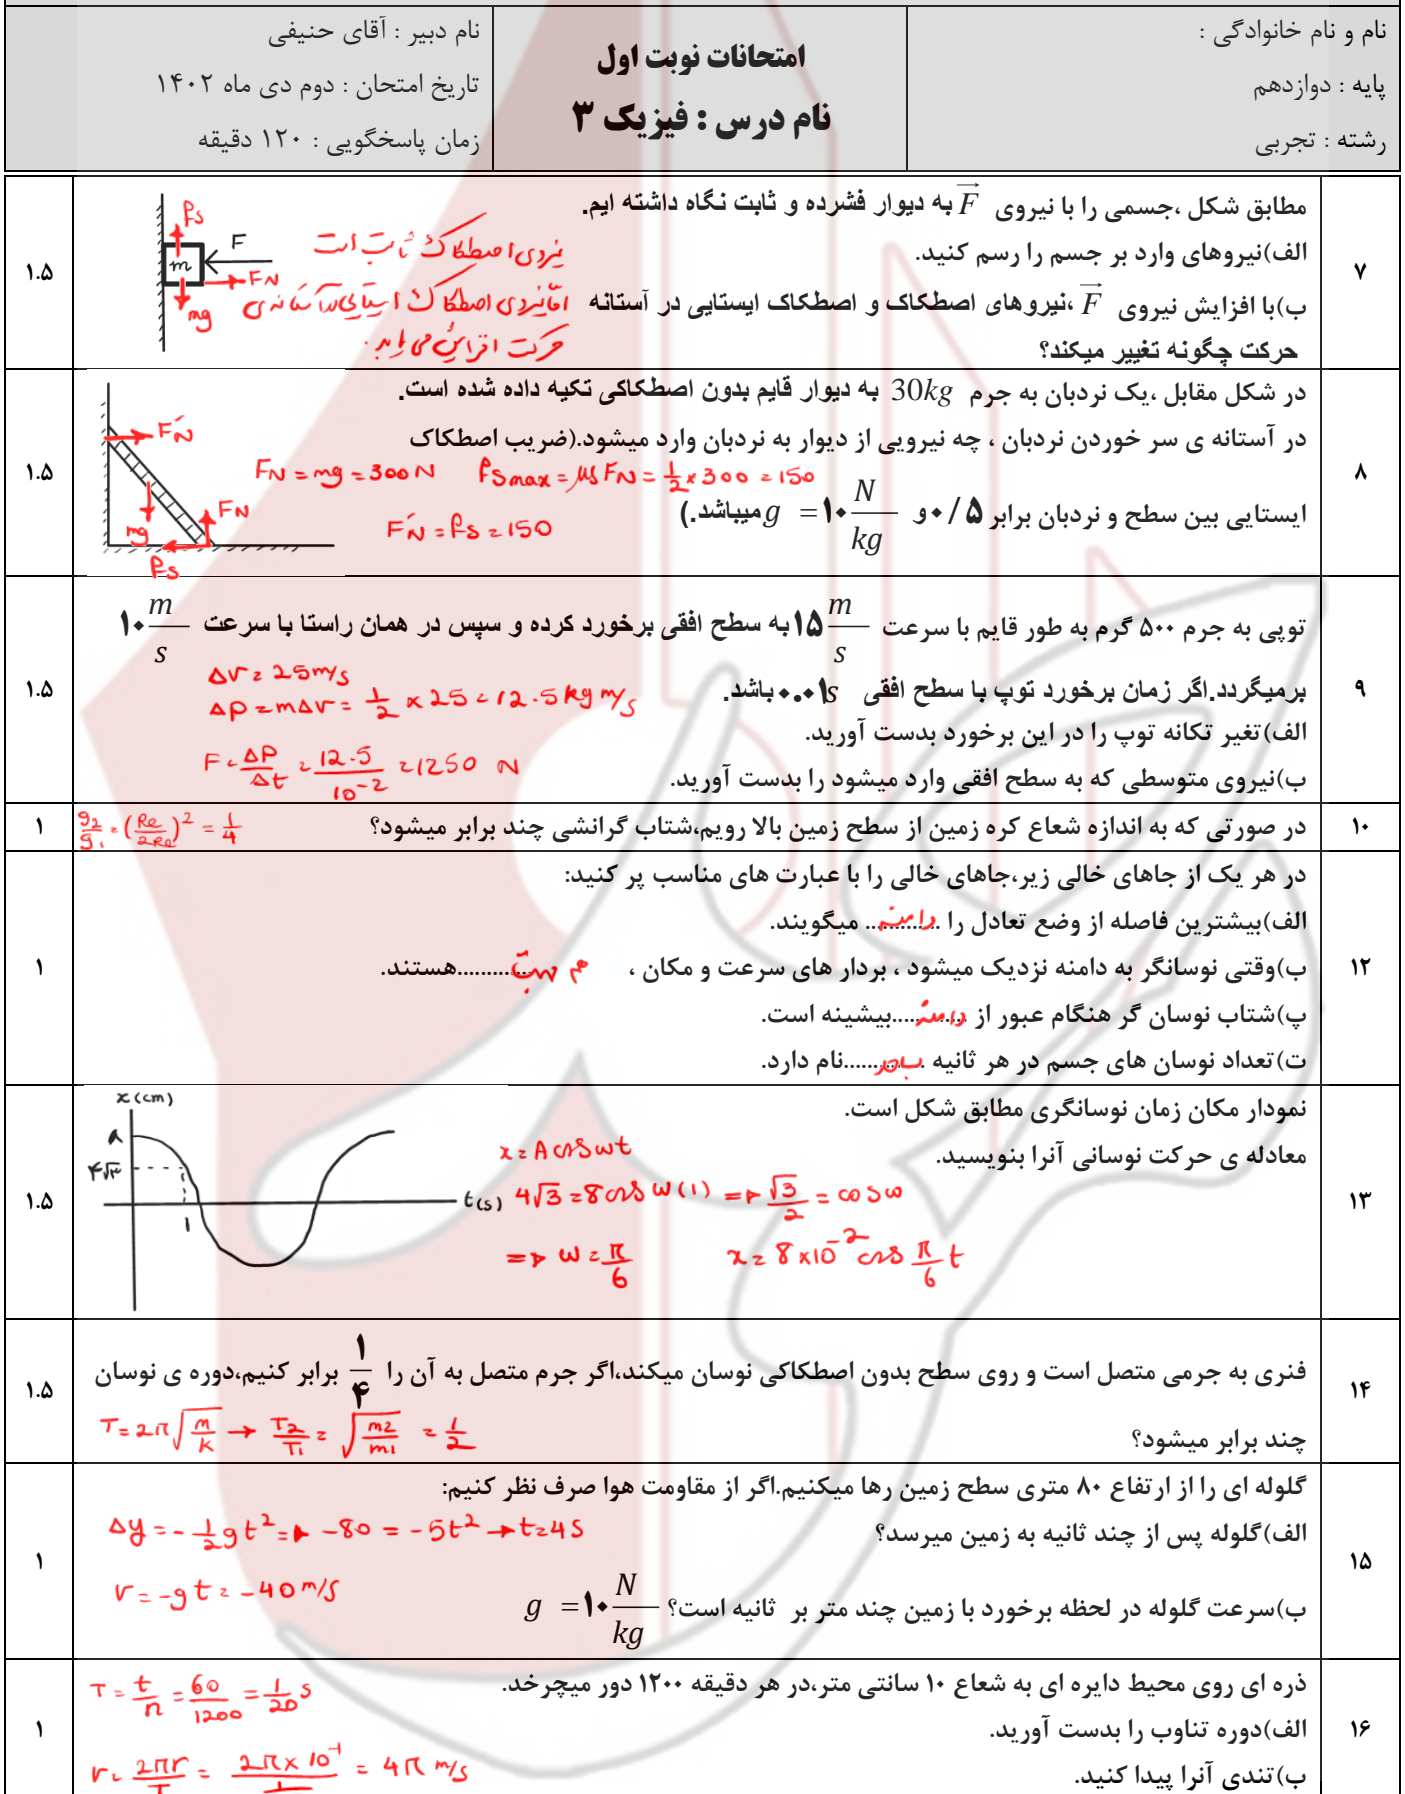 نام و نام خانوادگی :
پایه : دوازدهم
رشته : تجربی
امتحانات نوبت اول
نام درس : فیزیک ۳
نام دبیر : آقای حنیفی
تاریخ امتحان : دوم دی ماه ۱۴۰۲
زمان پاسخگویی : ۱۲۰ دقیقه
۷
مطابق شکل ،جسمی را با نیروی F به دیوار فشرده و ثابت نگاه داشته ایم.
الف)نیروهای وارد بر جسم را رسم کنید.
ب)با افزایش نیروی F ،نیروهای اصطکاک و اصطکاک ایستایی در آستانه
حرکت چگونه تغییر میکند؟
نیروی اصطکاک ثابت است
اما نیروی اصطکاک ایستایی در آستانه ی
حرکت افزایش می یابد.
fs
F
m
FN
mg
۱.۵
۸
در شکل مقابل ،یک نردبان به جرم 30kg به دیوار قایم بدون اصطکاکی تکیه داده شده است.
در آستانه ی سر خوردن نردبان ، چه نیرویی از دیوار به نردبان وارد میشود.(ضریب اصطکاک
ایستایی بین سطح و نردبان برابر ۰/۵ و g = ۱۰ N/kg میباشد.)
FN = mg = 300 N fsmax = μs FN = 1/2 × 300 = 150
F́N = fs = 150
F́N
FN
fs
۱.۵
۹
توپی به جرم ۵۰۰ گرم به طور قایم با سرعت ۱۵ m/s به سطح افقی برخورد کرده و سپس در همان راستا با سرعت ۱۰ m/s
برمیگردد.اگر زمان برخورد توپ با سطح افقی ۰.۰۱s باشد.
الف)تغیر تکانه توپ را در این برخورد بدست آورید.
ب)نیروی متوسطی که به سطح افقی وارد میشود را بدست آورید.
Δv = 25m/s
Δp = mΔv = 1/2 × 25 = 12.5 kg m/s
F = Δp/Δt = 12.5/10⁻² = 1250 N
۱.۵
۱۰
در صورتی که به اندازه شعاع کره زمین از سطح زمین بالا رویم،شتاب گرانشی چند برابر میشود؟
g2/g1 = (Re/2Re)² = 1/4
۱
۱۲
در هر یک از جاهای خالی زیر،جاهای خالی را با عبارت های مناسب پر کنید:
الف)بیشترین فاصله از وضع تعادل را ..دامنه.. میگویند.
ب)وقتی نوسانگر به دامنه نزدیک میشود ، بردار های سرعت و مکان ، هم جهت............هستند.
پ)شتاب نوسان گر هنگام عبور از ..دامنه....بیشینه است.
ت)تعداد نوسان های جسم در هر ثانیه ..بسامد.....نام دارد.
۱
۱۳
نمودار مکان زمان نوسانگری مطابق شکل است.
معادله ی حرکت نوسانی آنرا بنویسید.
x(cm)
۸
۴√۳
1
t(s)
x = A cos ωt
4√3 = 8 cos ω(1) => √3/2 = cos ω
=> ω = π/6 x = 8×10⁻² cos π/6 t
۱.۵
۱۴
فنری به جرمی متصل است و روی سطح بدون اصطکاکی نوسان میکند،اگر جرم متصل به آن را ۱/۴ برابر کنیم،دوره ی نوسان
چند برابر میشود؟
T = 2π√(m/k) → T2/T1 = √(m2/m1) = 1/2
۱.۵
۱۵
گلوله ای را از ارتفاع ۸۰ متری سطح زمین رها میکنیم.اگر از مقاومت هوا صرف نظر کنیم:
الف)گلوله پس از چند ثانیه به زمین میرسد؟
ب)سرعت گلوله در لحظه برخورد با زمین چند متر بر ثانیه است؟ g = ۱۰ N/kg
Δy = -1/2 gt² => -80 = -5t² → t=4s
v = -gt = -40 m/s
۱
۱۶
ذره ای روی محیط دایره ای به شعاع ۱۰ سانتی متر،در هر دقیقه ۱۲۰۰ دور میچرخد.
الف)دوره تناوب را بدست آورید.
ب)تندی آنرا پیدا کنید.
T = t/n = 60/1200 = 1/20 s
v = 2πr/T = 2π×10⁻¹ = 4π m/s
۱